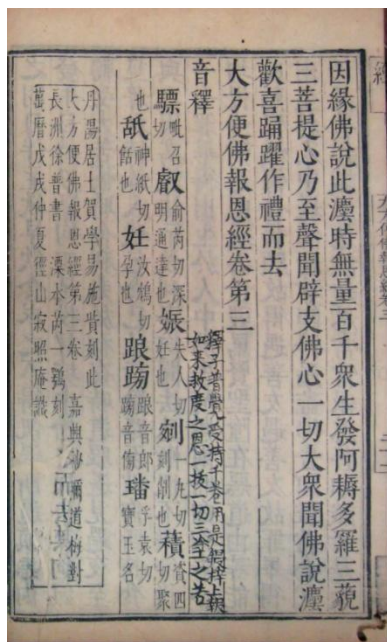 因緣佛說此灋時無量百千衆生發阿耨多羅三藐
三菩提心乃至聲聞辟支佛心一切大衆聞佛說灋
歡喜踊躍作禮而去
大方便佛報恩經卷第三
音釋
驃毗召切 叡俞芮切深明通達也 娠失人切妊也 剜刻削也 積資四切聚
也 舐神紙切餂也 妊汝鴆切孕也 踉䠙踉音郎䠙音傍 璠孚袁切寶玉名
丹陽居士賀學易施貲刻此
大方便佛報恩經第三卷 嘉興沙彌道樹對
長洲徐普書 溧水芮一鶚刻
萬曆戊戌仲夏徑山寂照庵識